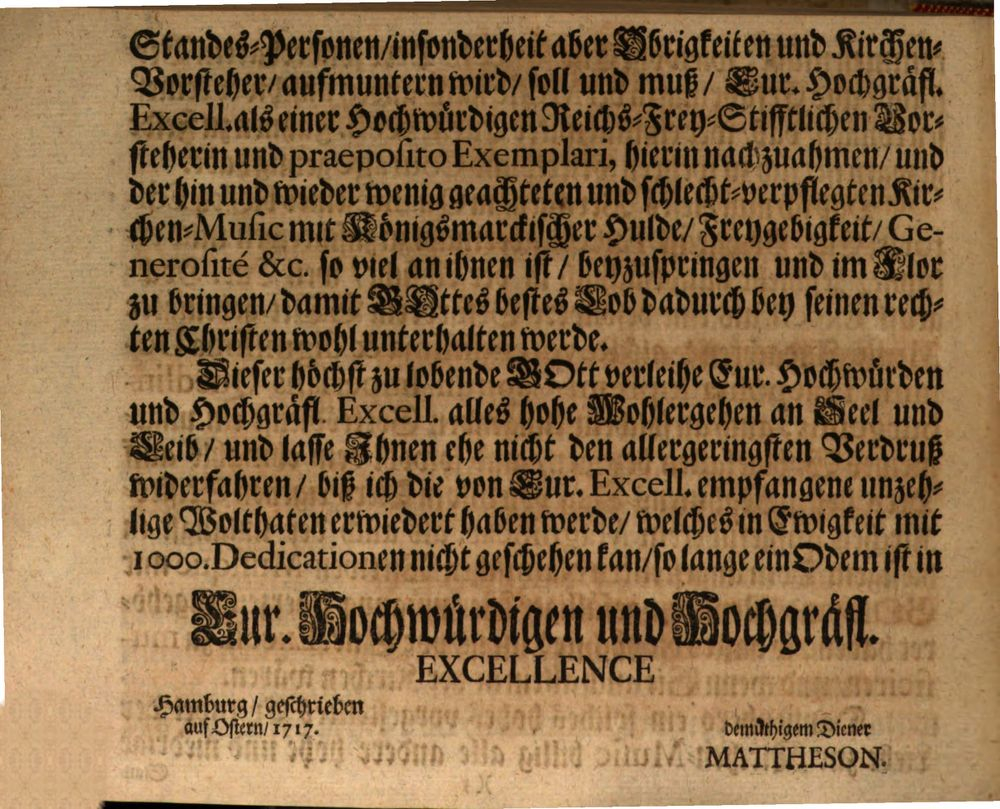 Standes-Personen/insonderheit aber Obrigkeiten und Kirchen-
Vorsteher/ aufmuntern wird/ soll und muß/ Eur. Hochgräfl.
Excell. als einer Hochwürdigen Reichs-Frey-Stifftlichen Vor-
steherin und praeposito Exemplari, hierin nachzuahmen/ und
der hin und wieder wenig geachteten und schlecht-verpflegten Kir-
chen-Music mit Königsmarckischer Hulde/ Freygebigkeit/ Ge-
nerosité &c. so viel an ihnen ist/ beyzuspringen und im Flor
zu bringen/ damit GOttes bestes Lob dadurch bey seinen rech-
ten Christen wohl unterhalten werde.
Dieser höchst zu lobende GOtt verleihe Eur. Hochwürden
und Hochgräfl. Excell. alles hohe Wohlergehen an Seel und
Leib/ und lasse Ihnen ehe nicht den allergeringsten Verdruß
widerfahren/ biß ich die von Eur. Excell. empfangene unzeh-
lige Wolthaten erwiedert haben werde/ welches in Ewigkeit mit
1000. Dedicationen nicht geschehen kan/ so lange ein Odem ist in
Eur. Hochwürdigen und Hochgräfl.
EXCELLENCE
Hamburg/ geschrieben
auf Ostern/ 1717.
demüthigem Diener
MATTHESON.